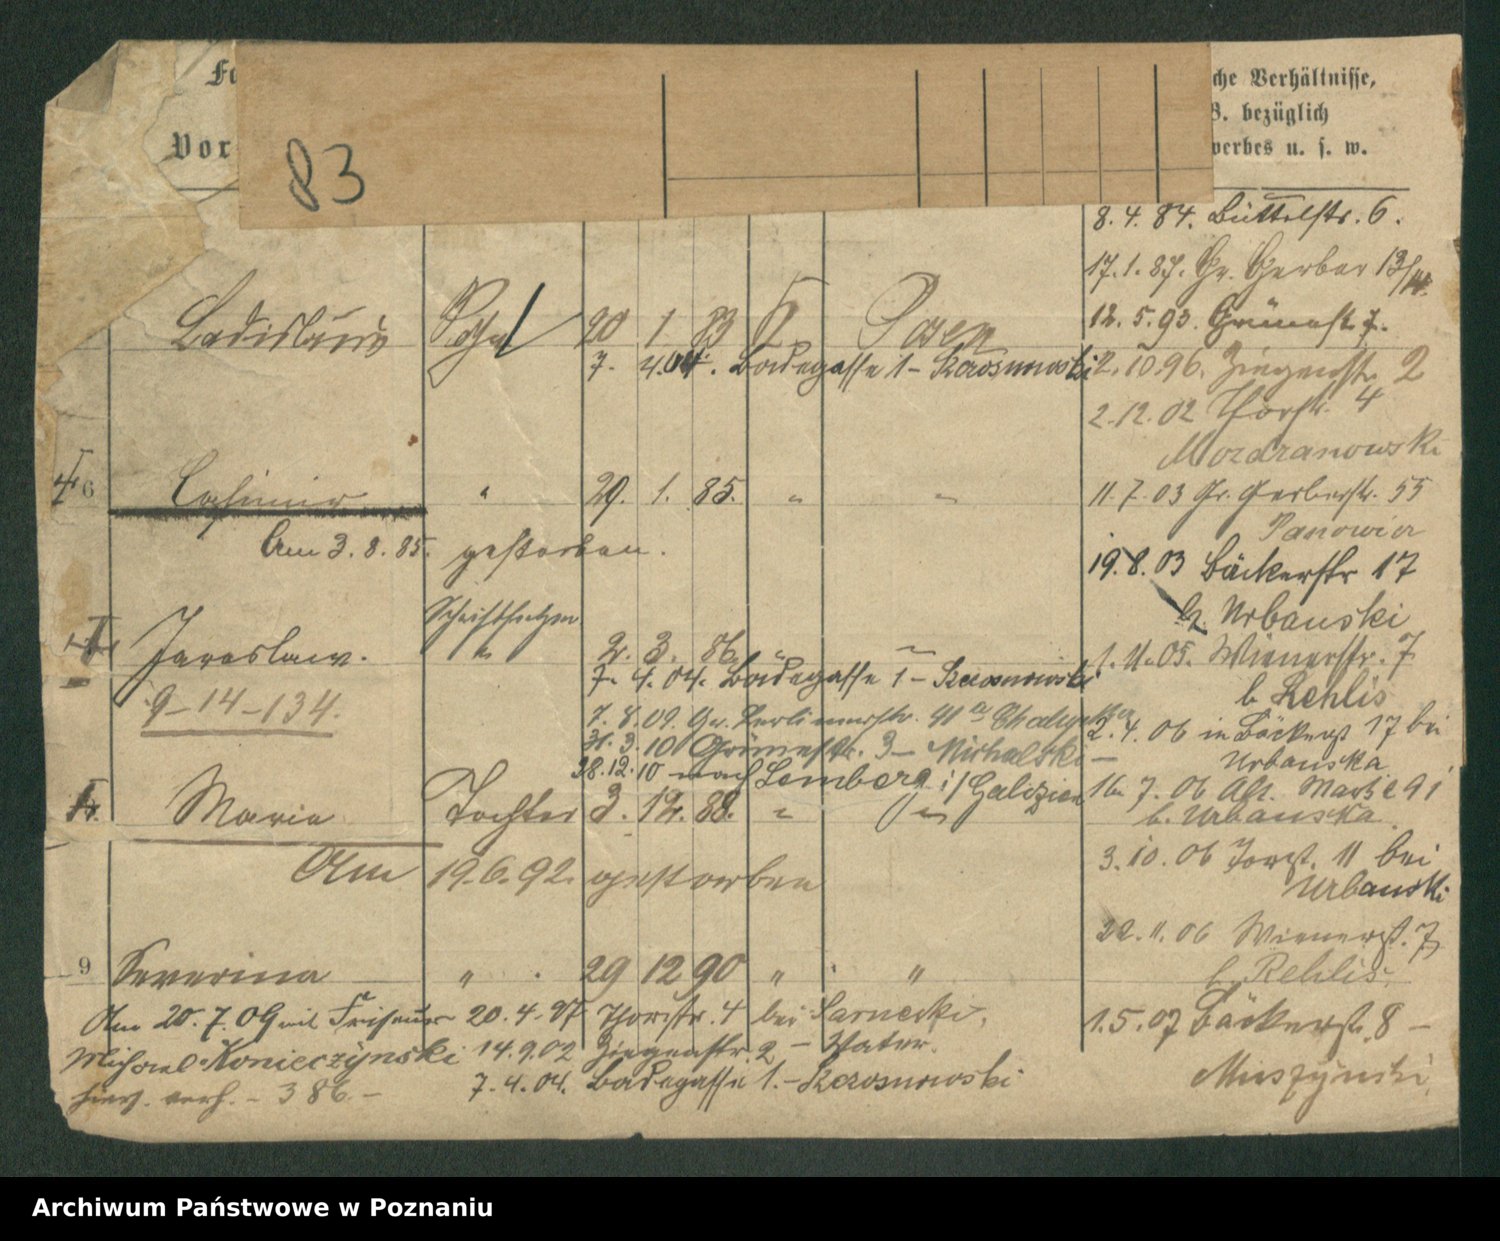 83
che Verhältnisse,
B. bezüglich
werbes u. s. w.
Vor
8. 4. 84. Büttelstr. 6.
17. 1. 87. Gr. Gerber 13/14.
12. 5. 93. Grünestr. 7.
Ladislaus Sohn 20 1 83 Posen
7. 4. 04. Badegasse 1 –
2. 10. 96. Ziegenstr. 2
2. 12. 02 Thorstr. 4
Mozdzanowski
6 Casimir " 29. 1. 85. " "
11. 7. 03 Gr. Gerberstr. 55
Am 3. 8. 85. gestorben.
19. 8. 03 Bäckerstr 17
b. Urbanski
Schriftsetzer
Jaroslaw. " 2. 3. 86. " "
1. 11. 05. Wienerstr. 7
7. 4. 04. Badegasse 1 –
b Rehlis
9–14–134.
7. 8. 09. Gr. Berlinerstr. 41a
2. 4. 06 in Bäckerst 17 bei
Urbanska
31. 3. 10 Grünestr. 3 – Michalski –
28. 12. 10 nach Lemberg i/Galizien
Maria Tochter 3. 12. 88. " "
16. 7. 06 Alt. Markt 91
b. Urbanska.
Am 19. 6. 92. gestorben
3. 10. 06 Torst. 11 bei
Urbanski
22. 11. 06 Wienerst. 7
b Rehlis.
9 Severina " 29 12 90 " "
Am 20. 7. 09 mit Friseur
Michael Konieczynski
hier. verh. – 386 –
20. 4. 97 Thorstr. 4 bei Sarnecki,
14. 9. 02 Ziegenstr. 2 – Vater.
7. 4. 04. Badegasse 1. –
1. 5. 07 Bäckerst. 8 –
Muszynski